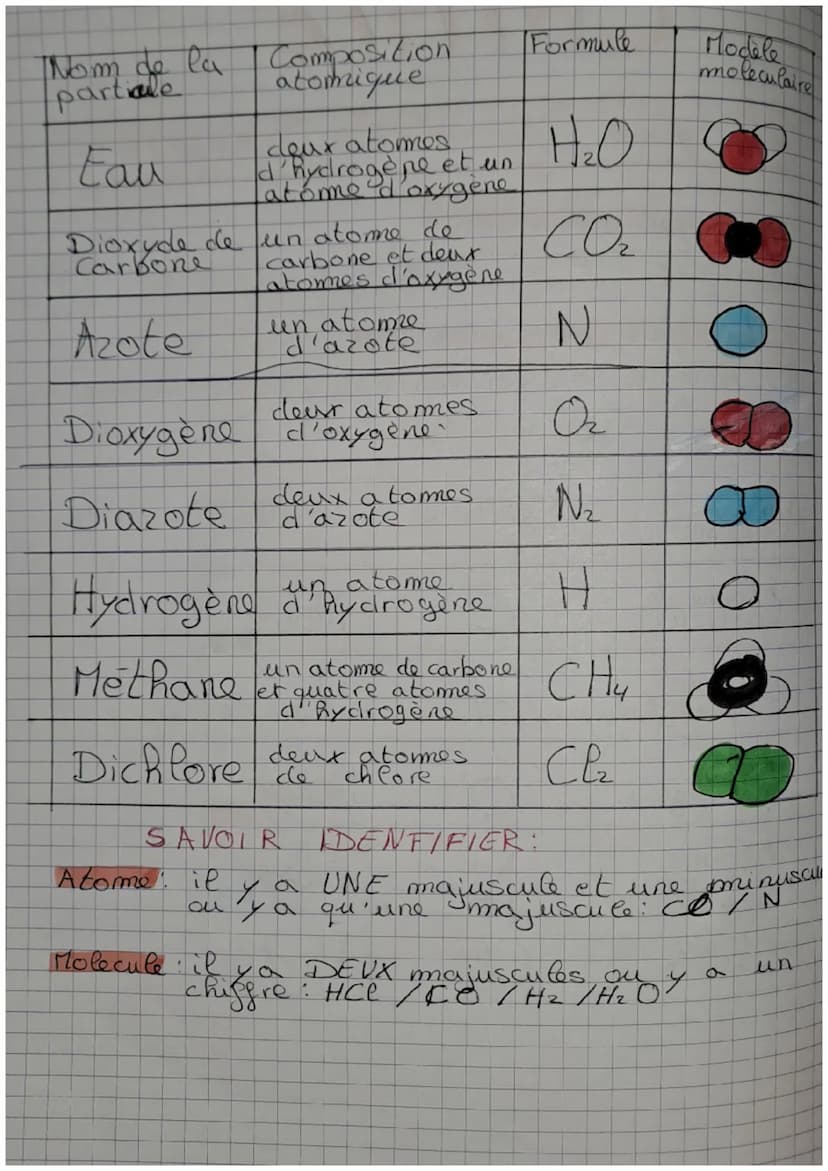 Nom de la particule
Composition atomique
Formule
Modèle moleculaire
Eau
deux atomes
d'hydrogène et un
atome d'oxygène
H₂O
Dioxyde de
Carbone
un atome de
carbone et deux
atomes d'oxygène
CO₂
Azote
un atome
d'azote
N
Dioxygène
deux atomes
d'oxygène
O₂
Diazote
deux atomes
d'azote
N₂
Hydrogène
un atome
d'hydrogène
H
Méthane
un atome de carbone
et quatre atomes
d'hydrogène
CH₄
Dichlore
deux atomes
de chlore
Cl₂
SAVOIR IDENTIFIER:
Atome: il y a UNE majuscule et une minuscu
ou y a qu'une majuscule: Cl / N
Molecule: il y a DEUX majuscules ou y a un
chiffre: HCl / CO / H₂ / H₂O